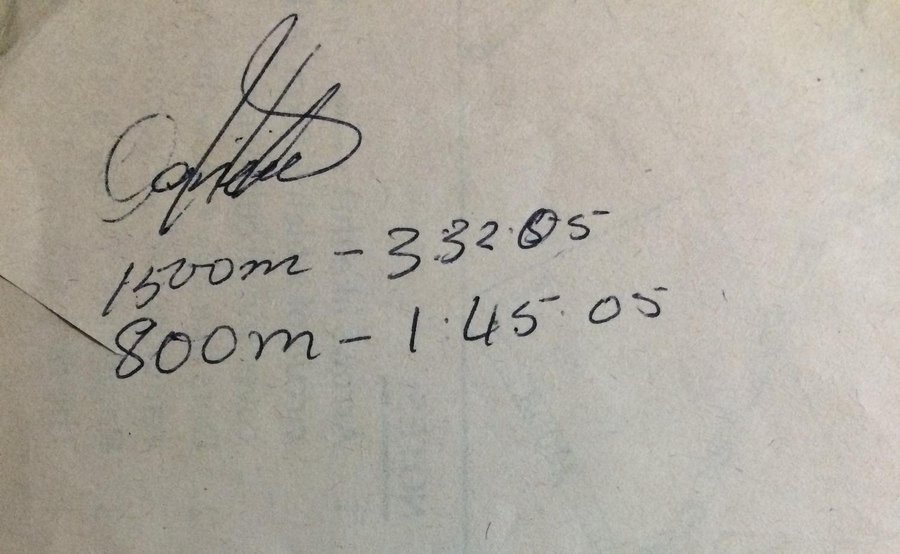 1500m - 3:32.05
800m - 1:45.05